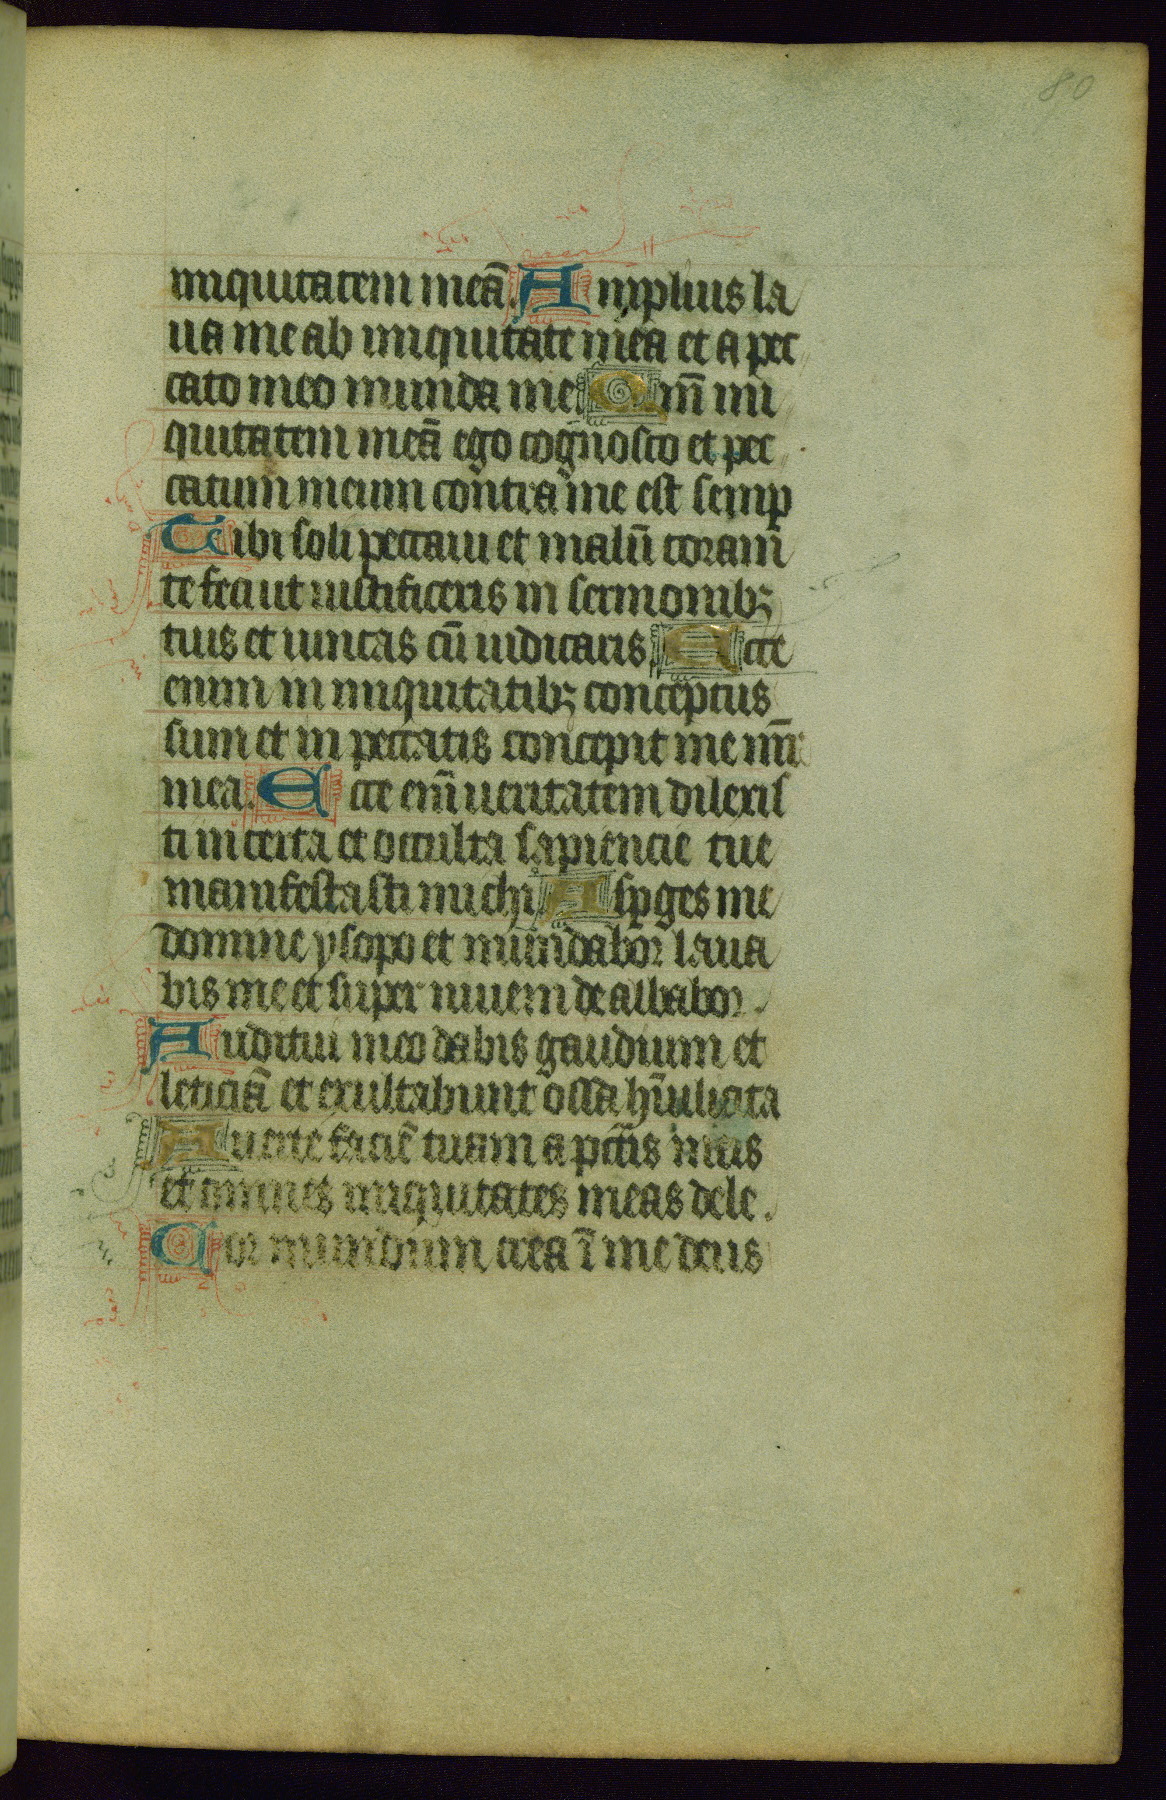 80
iniquitatem meā. Amplius la
ua me ab iniquitate mea et a pec
cato meo munda me. Qm̄ ini
quitatem meā ego cognosco et pec
catum meum contra me est semp
Tibi soli peccaui et malū coram
te feci ut iustificeris in sermonibꝫ
tuis et vincas cū iudicaris. Ecce
enim in iniquitatibꝫ conceptus
sum et in peccatis concepit me mr̄
mea. Ecce em̄ ueritatem dilexis
ti incerta et occulta sapiencie tue
manifestasti michi. Aspges me
domine ysopo et mundabor laua
bis me et super niuem dealbabor.
Auditui meo dabis gaudium et
leticiā et exultabunt ossa hūiliata
Auerte faciē tuam a pctīs meis
et omnes iniquitates meas dele.
Cor mundum crea ī me deus